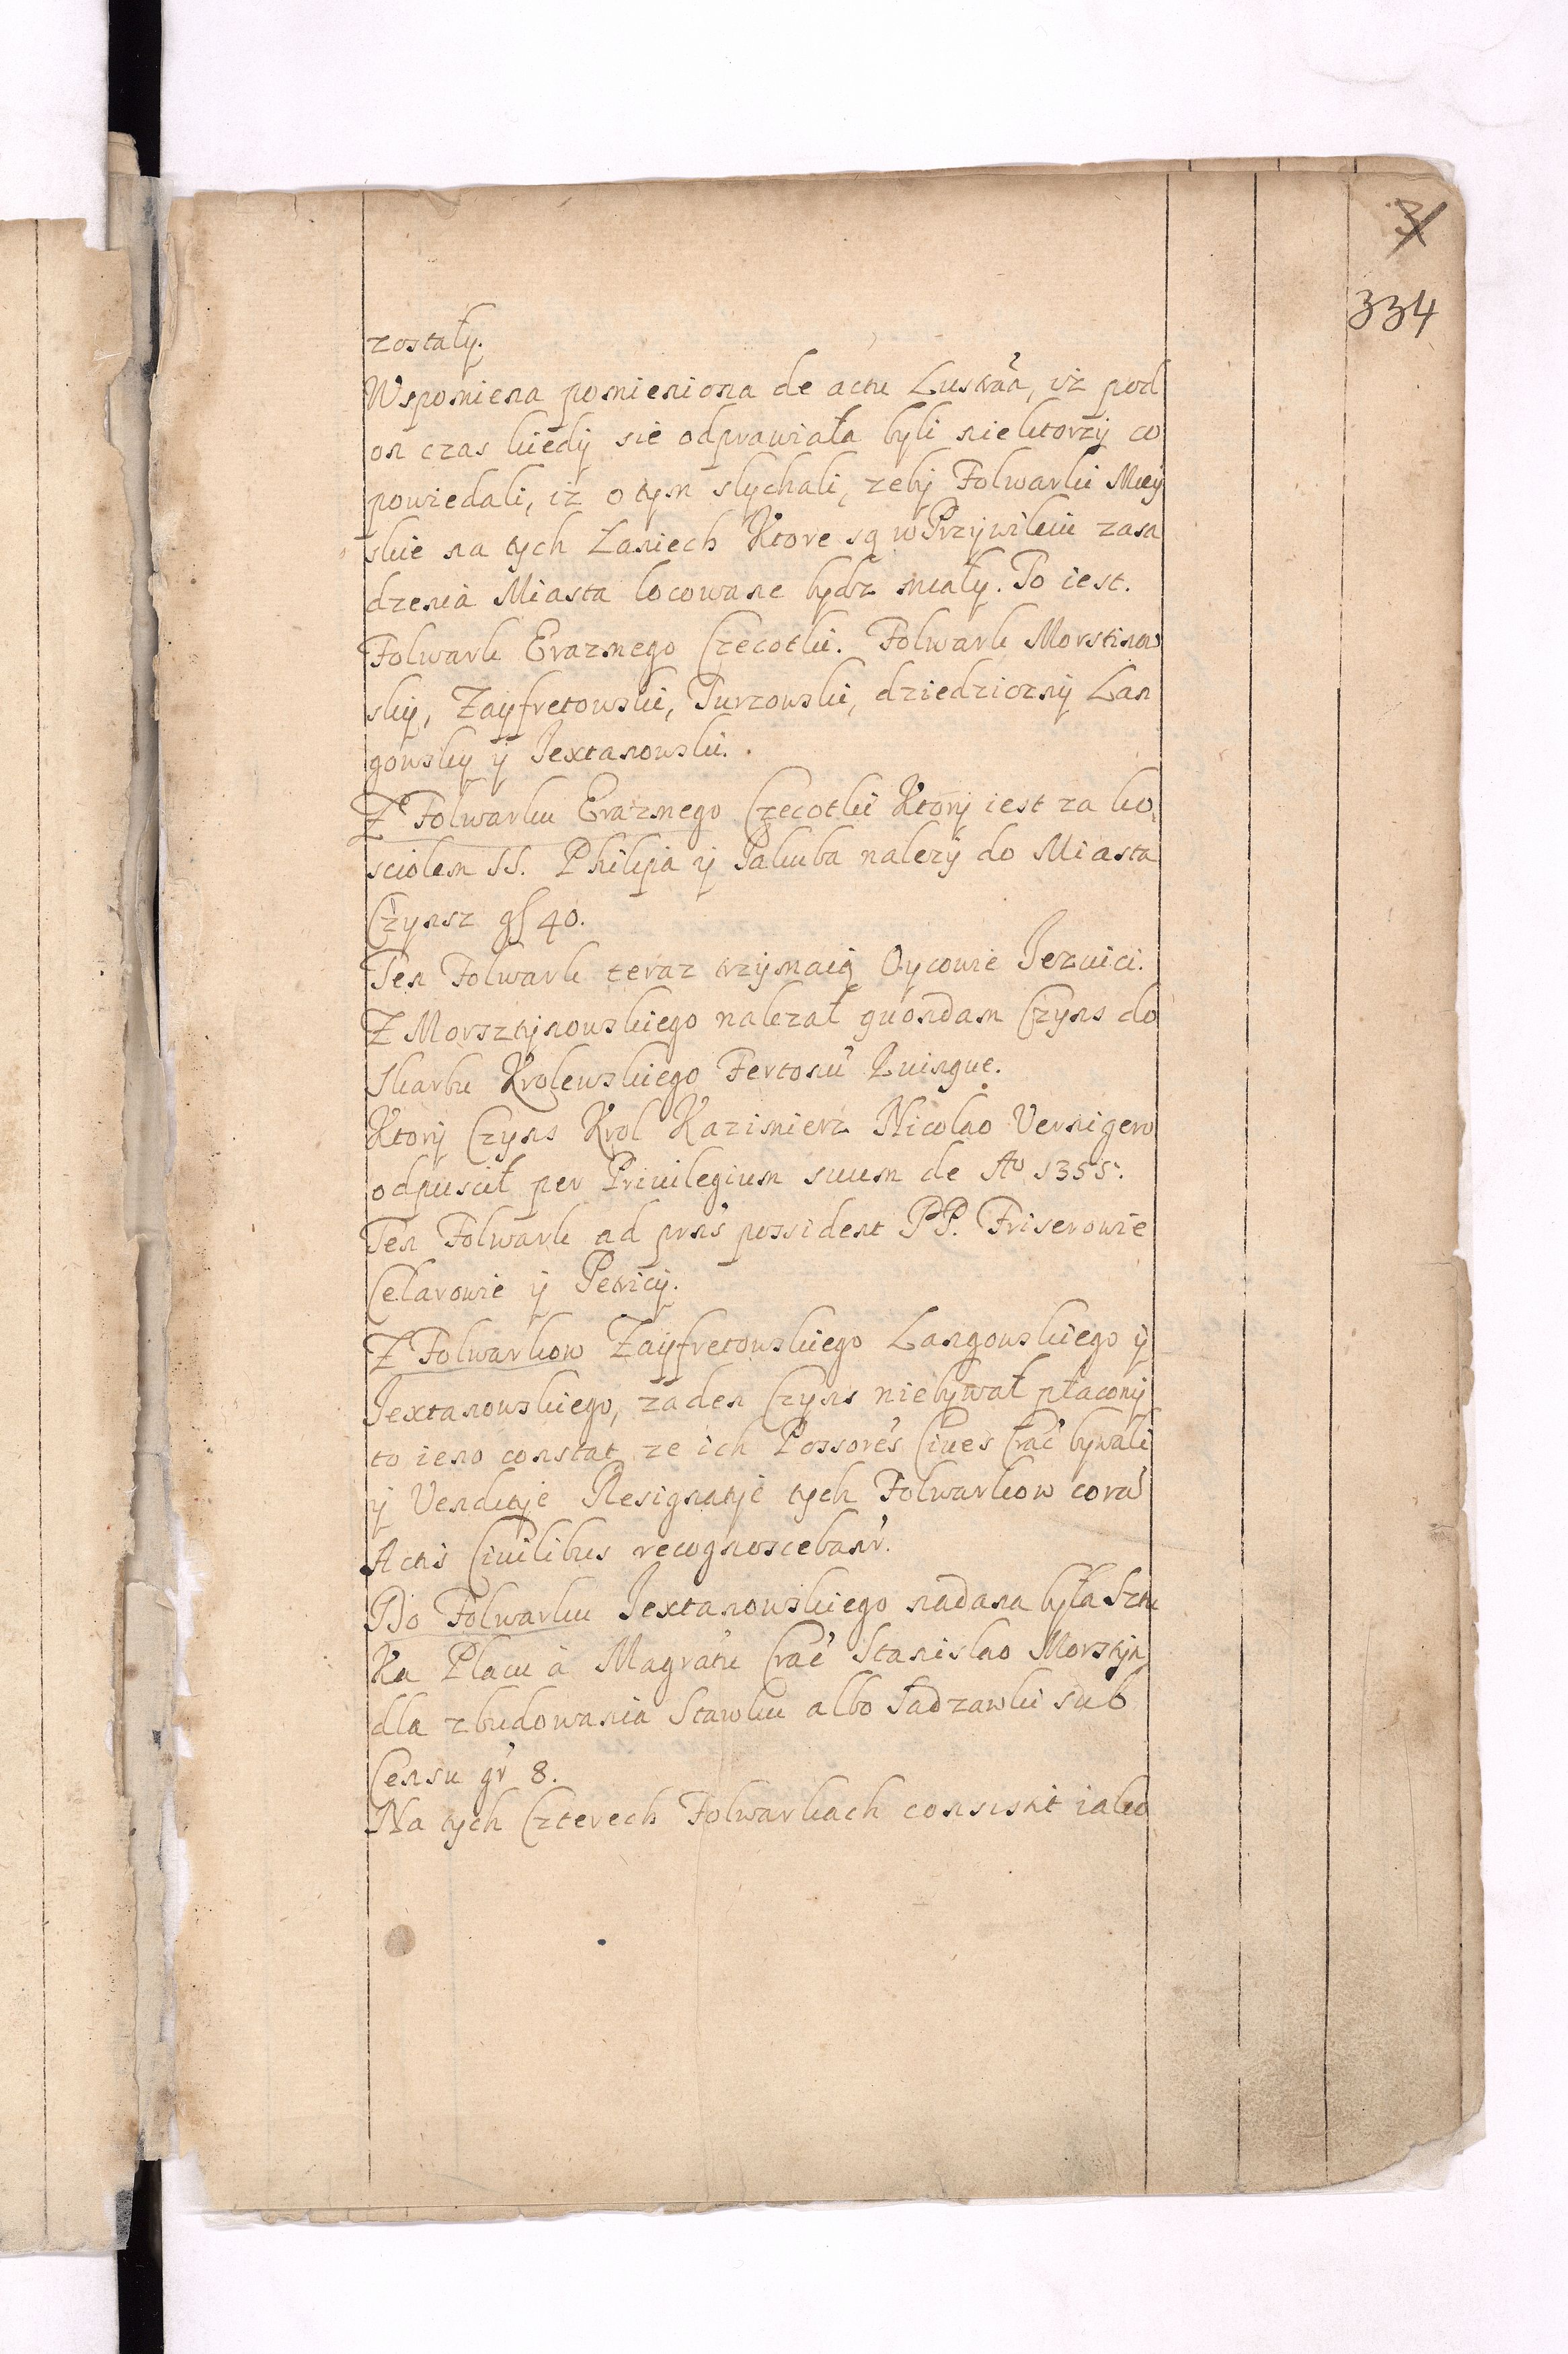 334
zostały.
Wspomiena pomieniona de actu Lustraa, iż pod
on czas kiedy sie odprawiała byli niektorzy co
powiedali, iz o tym slychali, zeby Folwarki Miey
skie na tych Laniech Ktore są w Przywileiu zasa
dzenia Miasta locowane bydz miały. To iest.
Folwark Erazmego Czecotki. Folwark Morstinow
sky, Zayfretowski, Turzowski, dziedziczny Lan
gowsky y Jextanowski.
Z Folwarku Erazmego Czecotki Ktory iest za ko,
sciolem SS. Philipa y Jakuba nalezy do Miasta
Czynsz gſ 40.
Ten Folwark teraz trzymaią Oycowie Jezuici.
Z Morsztynowskiego nalezał quondam Czyns do
Skarbu Krolewskiego Fertonu Quinque.
Ktory Czyns Krol Kazimierz Nicolao Vernigero
odpuscił per Priuilegium suum de Ao 1355.
Ten Folwark ad prns possident PP. Friserowie
Celarowie y Petricy.
Z Folwarkow Zayfretowskiego Langowskiego y
Jextanowskiego, zaden Czyns niebywał płacony
to ieno constat, ze ich Possores Ciues Crac bywali
y Venditye Resignatye tych Folwarkow cora
Actis Ciuilibus recognoscebanr.
Do Folwarku Jextanowskiego nadana była Sztu
Ka Placu à Magratu Crac Stanislao Morsztyn
dla zbudowania Stawku albo Sadzawki sub
Censu gr 8.
Na tych Czterech Folwarkach consistit iako